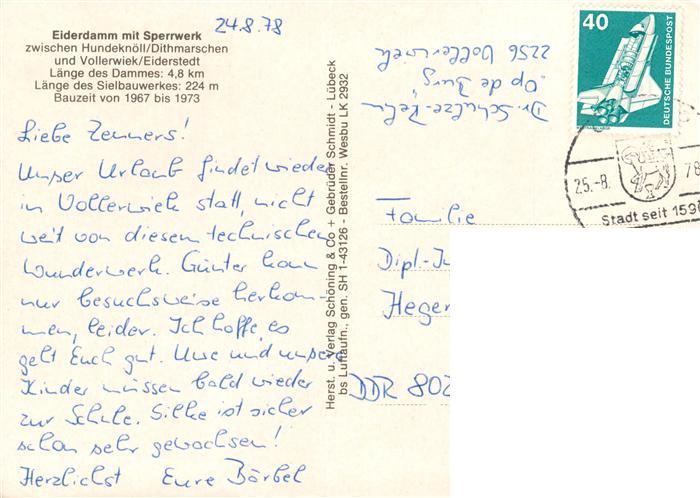 24.8.78
Eiderdamm mit Sperrwerk
zwischen Hundeknöll/Dithmarschen
und Vollerwiek/Eiderstedt
Länge des Dammes: 4,8 km
Länge des Sielbauwerkes: 224 m
Bauzeit von 1967 bis 1973
Liebe Zenners!
Unser Urlaub findet wieder
in Vollerwiek statt, nicht
weit von diesem technischen
Wunderwerk. Günter kann
nur besuchsweise herkom-
men, leider. Ich hoffe, es
geht Euch gut. Uwe und unsere
Kinder müssen bald wieder
zur Schule. Silke ist sicher
schon sehr gewachsen!
Herzlichst Eure Bärbel
Herst. u. Verlag Schöning & Co + Gebrüder Schmidt - Lübeck
bs Luftaufn., gen. SH 1-43126 - Bestellnr. Wesbu LK 2932
Dr. Schulze-
"Op de Burg"
2256 Vollerwiek
40
DEUTSCHE BUNDESPOST
25.-8. 78
Stadt seit 1590
Familie
Dipl.-In
Heger
DDR 802